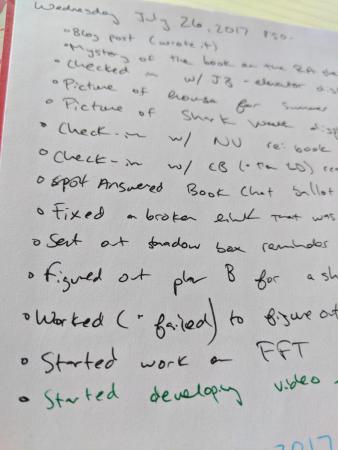 Wednesday July 26, 2017
• Blog post (wrote it)
• Mystery of the book on the
• Checked in w/ JB - elevator
• Picture of browse for summer
• Picture of Shark Week disp
• Check-in w/ NV re: book
• Check-in w/ CB
• Answered Book Chat ballot
• Fixed a broken link that was
• Sent out shadow box reminders
• Figured out plan B for a sh
• Worked (+ failed) to figure out
• Started work on FFT
• Started developing video
2017